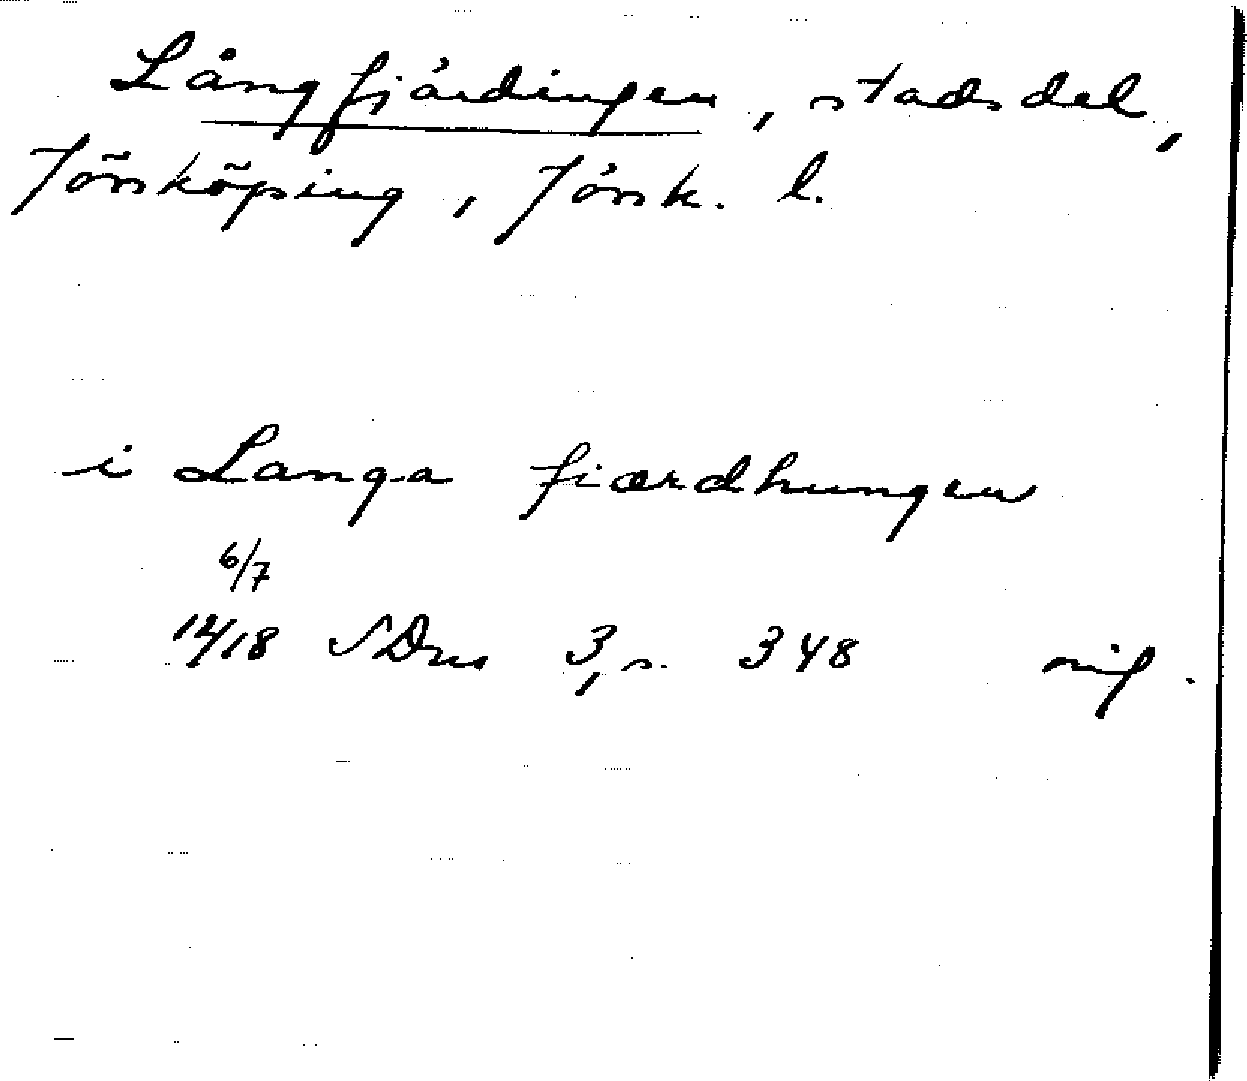 Långfjärdingen, stadsdel,
Jönköping, Jönk. l.
i Langa fiærdhungen
6/7
1418 SDns 3, s. 348 orig.